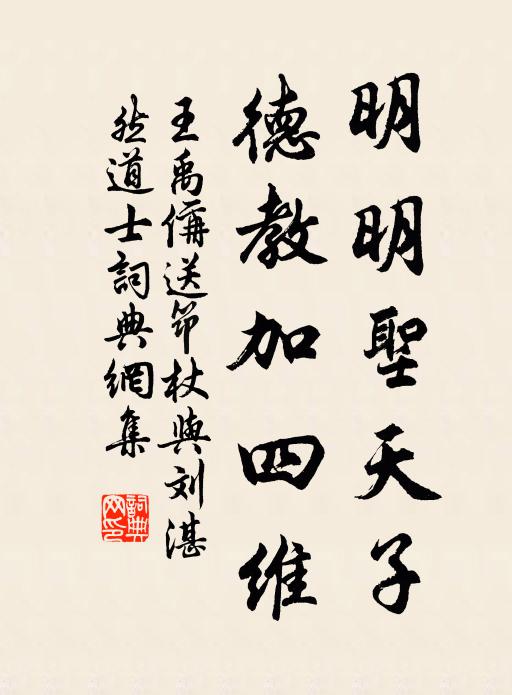 明明聖天子
德教加四維
王禹偁送笻杖與刘湛
然道士詞典網集
詞典網印